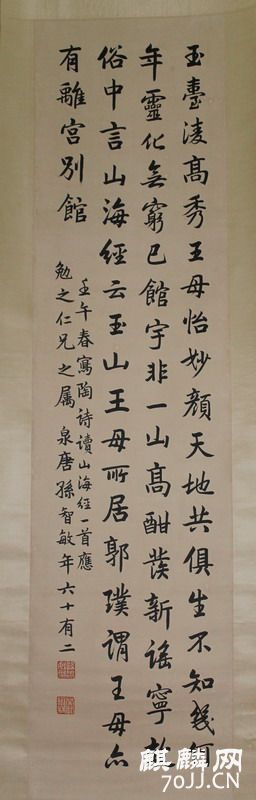 玉臺凌高秀王母怡妙顏天地共俱生不知幾
年靈化無窮已館宇非一山高酣發新謠寧
俗中言山海經云玉山王母所居郭璞謂王母亦
有離宮別館
壬午春寫陶詩讀山海經一首應
勉之仁兄之属 泉唐孫智敏年六十有二
麒麟网
70JJ.CN